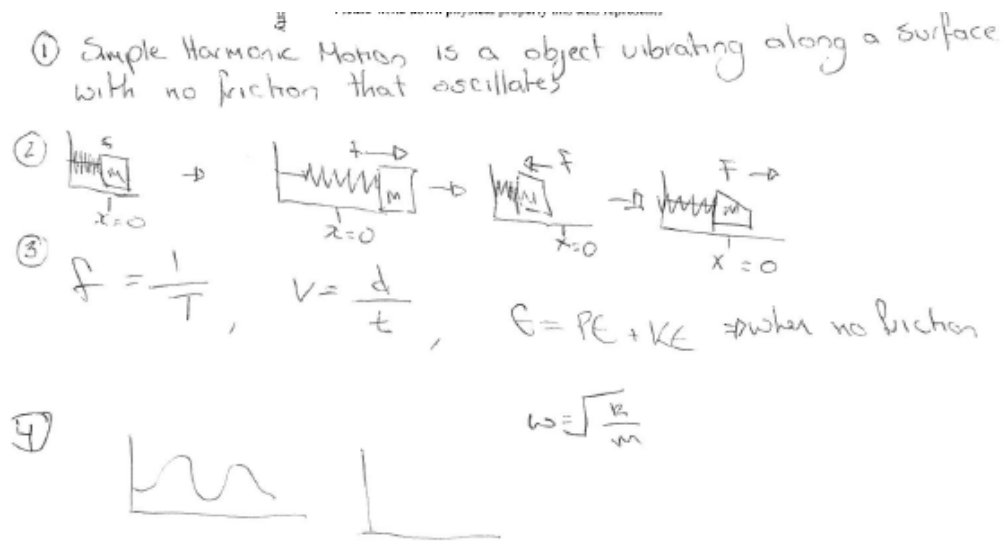 ① Simple Harmonic Motion is a object vibrating along a surface
with no friction that oscillates
②
m m M m
F F
x=0 x=0 x=0 x=0
③ f = 1/T , V = d/t , E = PE + KE ⇒ when no friction
④ ω = √k/m